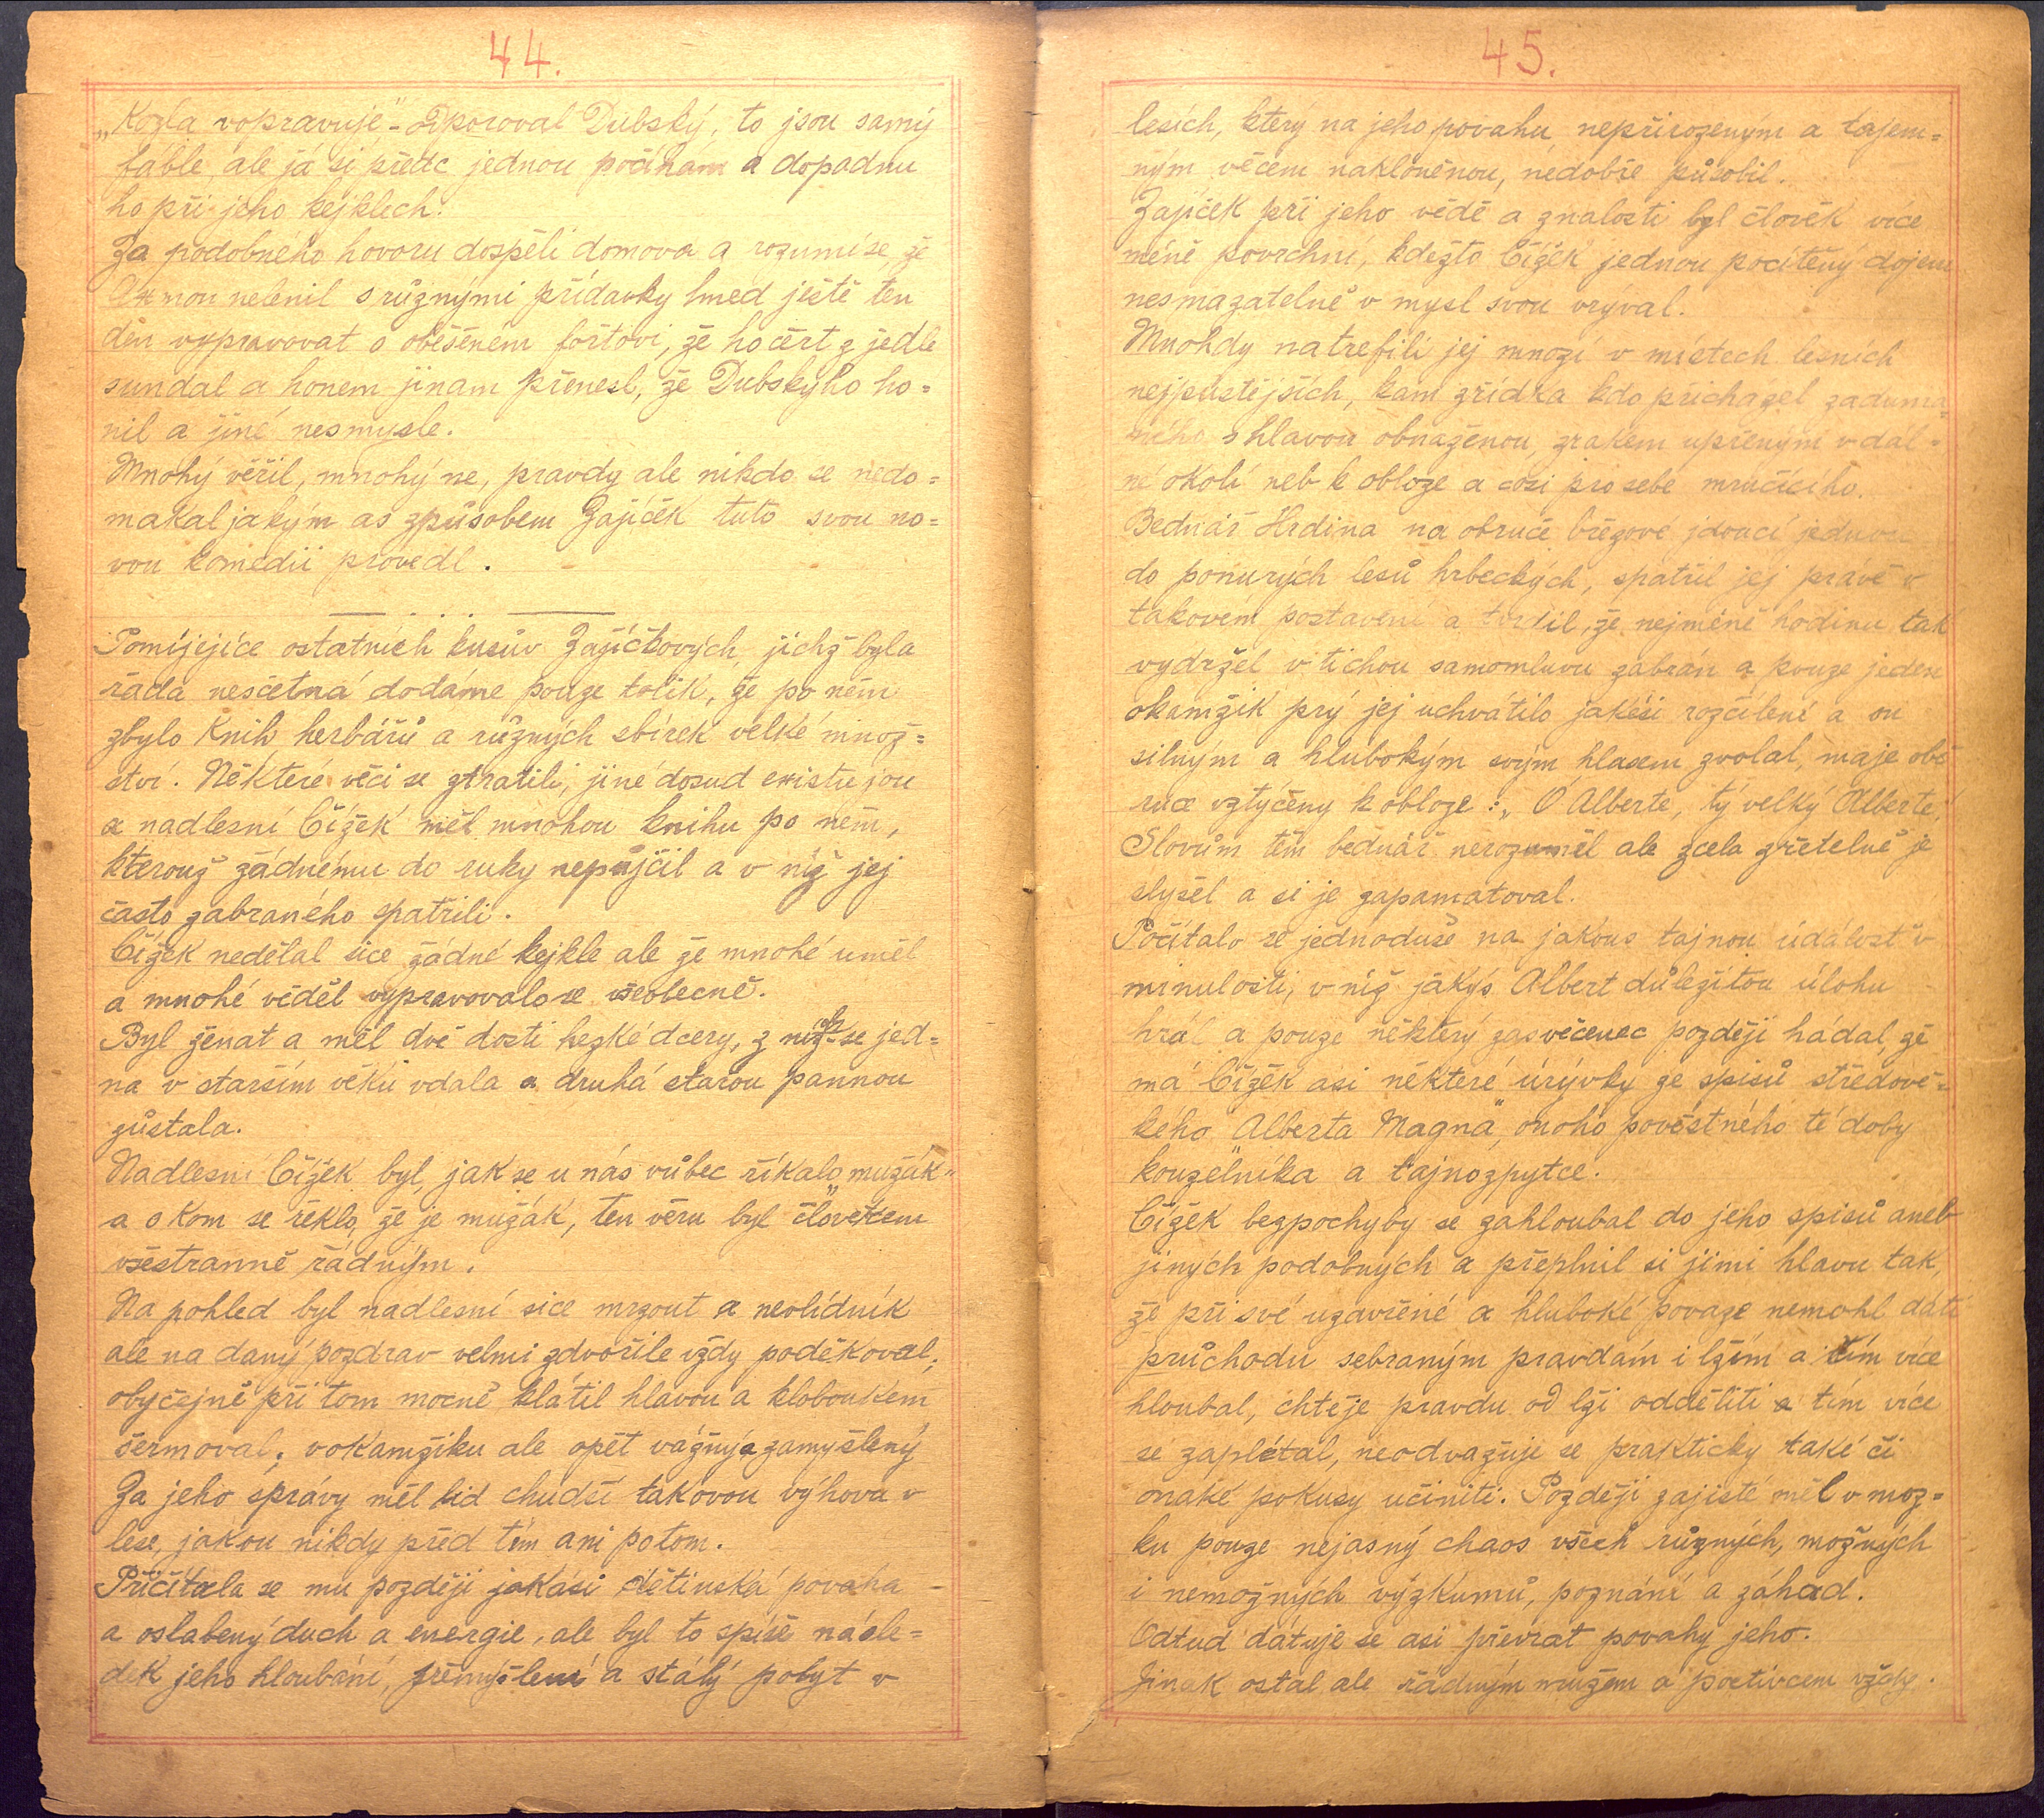 44.
„Kozla vopravuje“ - odporoval Dubský, to jsou samý
fáble, ale já si přece jednou počíhám a dopadnu
ho při jeho kejklech.
Za podobného hovoru dospěli domova a rozumí se, že
nelenil s různými přídavky hned ještě ten
den vypravovat o oběšeném forštovi, že ho čert z jedle
sundal a honem jinam přenesl, že Dubskýho ho=
nil a jiné nesmysle.
Mnohý věřil, mnohý ne, pravdy ale nikdo se nedo=
makal jakým as způsobem Zajíček tuto svou no=
vou komedii provedl.
Pomíjejíce ostatních kusův Zajíčkových, jichž byla
řada nesčetná dodáme pouze tolik, že po něm
zbylo knih herbářů a různých sbírek velké množ=
ství. Některé věci se ztratili, jiné dosud existujou
a nadlesní Čížek měl mnohou knihu po něm,
kterouž žádnému do ruky nepůjčil a v níž jej
často zabraného spatřili.
Čížek nedělal sice žádné kejkle ale že mnohé uměl
a mnohé věděl vypravovalo se všeobecně.
Byl ženat a měl dvě dosti hezké dcery, z nichž se jed=
na v starším věku vdala a druhá starou pannou
zůstala.
Nadlesní Čížek byl, jak se u nás vůbec říkalo „mužák“
a o kom se řeklo, že je mužák, ten věru byl člověkem
všestranně řádným.
Na pohled byl nadlesní sice mrzout a nevlídník
ale na daný pozdrav velmi zdvořile vždy poděkoval;
obyčejně při tom mocně klátil hlavou a kloboukem
šermoval; v okamžiku ale opět vážný a zamyšlený
Za jeho správy měl lid chudší takovou výhovu v
lese, jakou nikdy před tím ani potom.
Přičítala se mu později jakási dětinská povaha -
a oslabený duch a energie, ale byl to spíše násle=
dek jeho hloubání, přemýšlení a stálý pobyt v
45.
lesích, který na jeho povahu, nepřirozeným a tajem=
ným věcem nakloněnou, nedobře působil.
Zajíček při jeho vědě a znalosti byl člověk více
méně povrchní, kdežto Čížek jednou pocítěný dojem
nesmazatelně v mysl svou vrýval.
Mnohdy natrefili jej mnozí v místech lesních
nejpustějších, kam zřídka kdo přicházel zaduma=
ného s hlavou obnaženou, zrakem upřeným v dál=
né okolí neb k obloze a cosi pro sebe mručícího.
Bednář Hrdina na obruče březové jdoucí jednou
do ponurých lesů hrbeckých, spatřil jej právě v
takovém postavení a tvrdil, že nejméně hodinu tak
vydržel v tichou samomluvu zabrán a pouze jeden
okamžik prý jej uchvátilo jakési rozčílení a on
silným a hlubokým svým hlasem zvolal, maje obě
ruce vztýčeny k obloze: „Ó Alberte, tý velký Alberte“,
Slovům těm bednář nerozuměl ale zcela zřetelně je
slyšel a si je zapamatoval.
Počítalo se jednoduše na jakous tajnou událost v
minulosti, v níž jakýs Albert důležitou úlohu
hrál a pouze některý zasvěcenec později hádal, že
má Čížek asi některé úrývky ze spisů středově=
kého „Alberta Magna“, onoho pověstného té doby
kouzelníka a tajnozpytce.
Čížek bezpochyby se zahloubal do jeho spisů aneb
jiných podobných a přeplnil si jimi hlavu tak,
že při své uzavřené a hluboké povaze nemohl dáti
průchodu sebraným pravdám i lžím a čím více
hloubal, chtěje pravdu od lži odděliti a tím více
se zaplétal, neodvažuje se prakticky také či
onaké pokusy učiniti. Později zajisté měl v moz=
ku pouze nejasný chaos všech různých, možných
i nemožných výzkumů, poznání a záhad.
Odtud datuje se asi převrat povahy jeho.
Jinak ostal ale řádným mužem a poctivcem vždy.